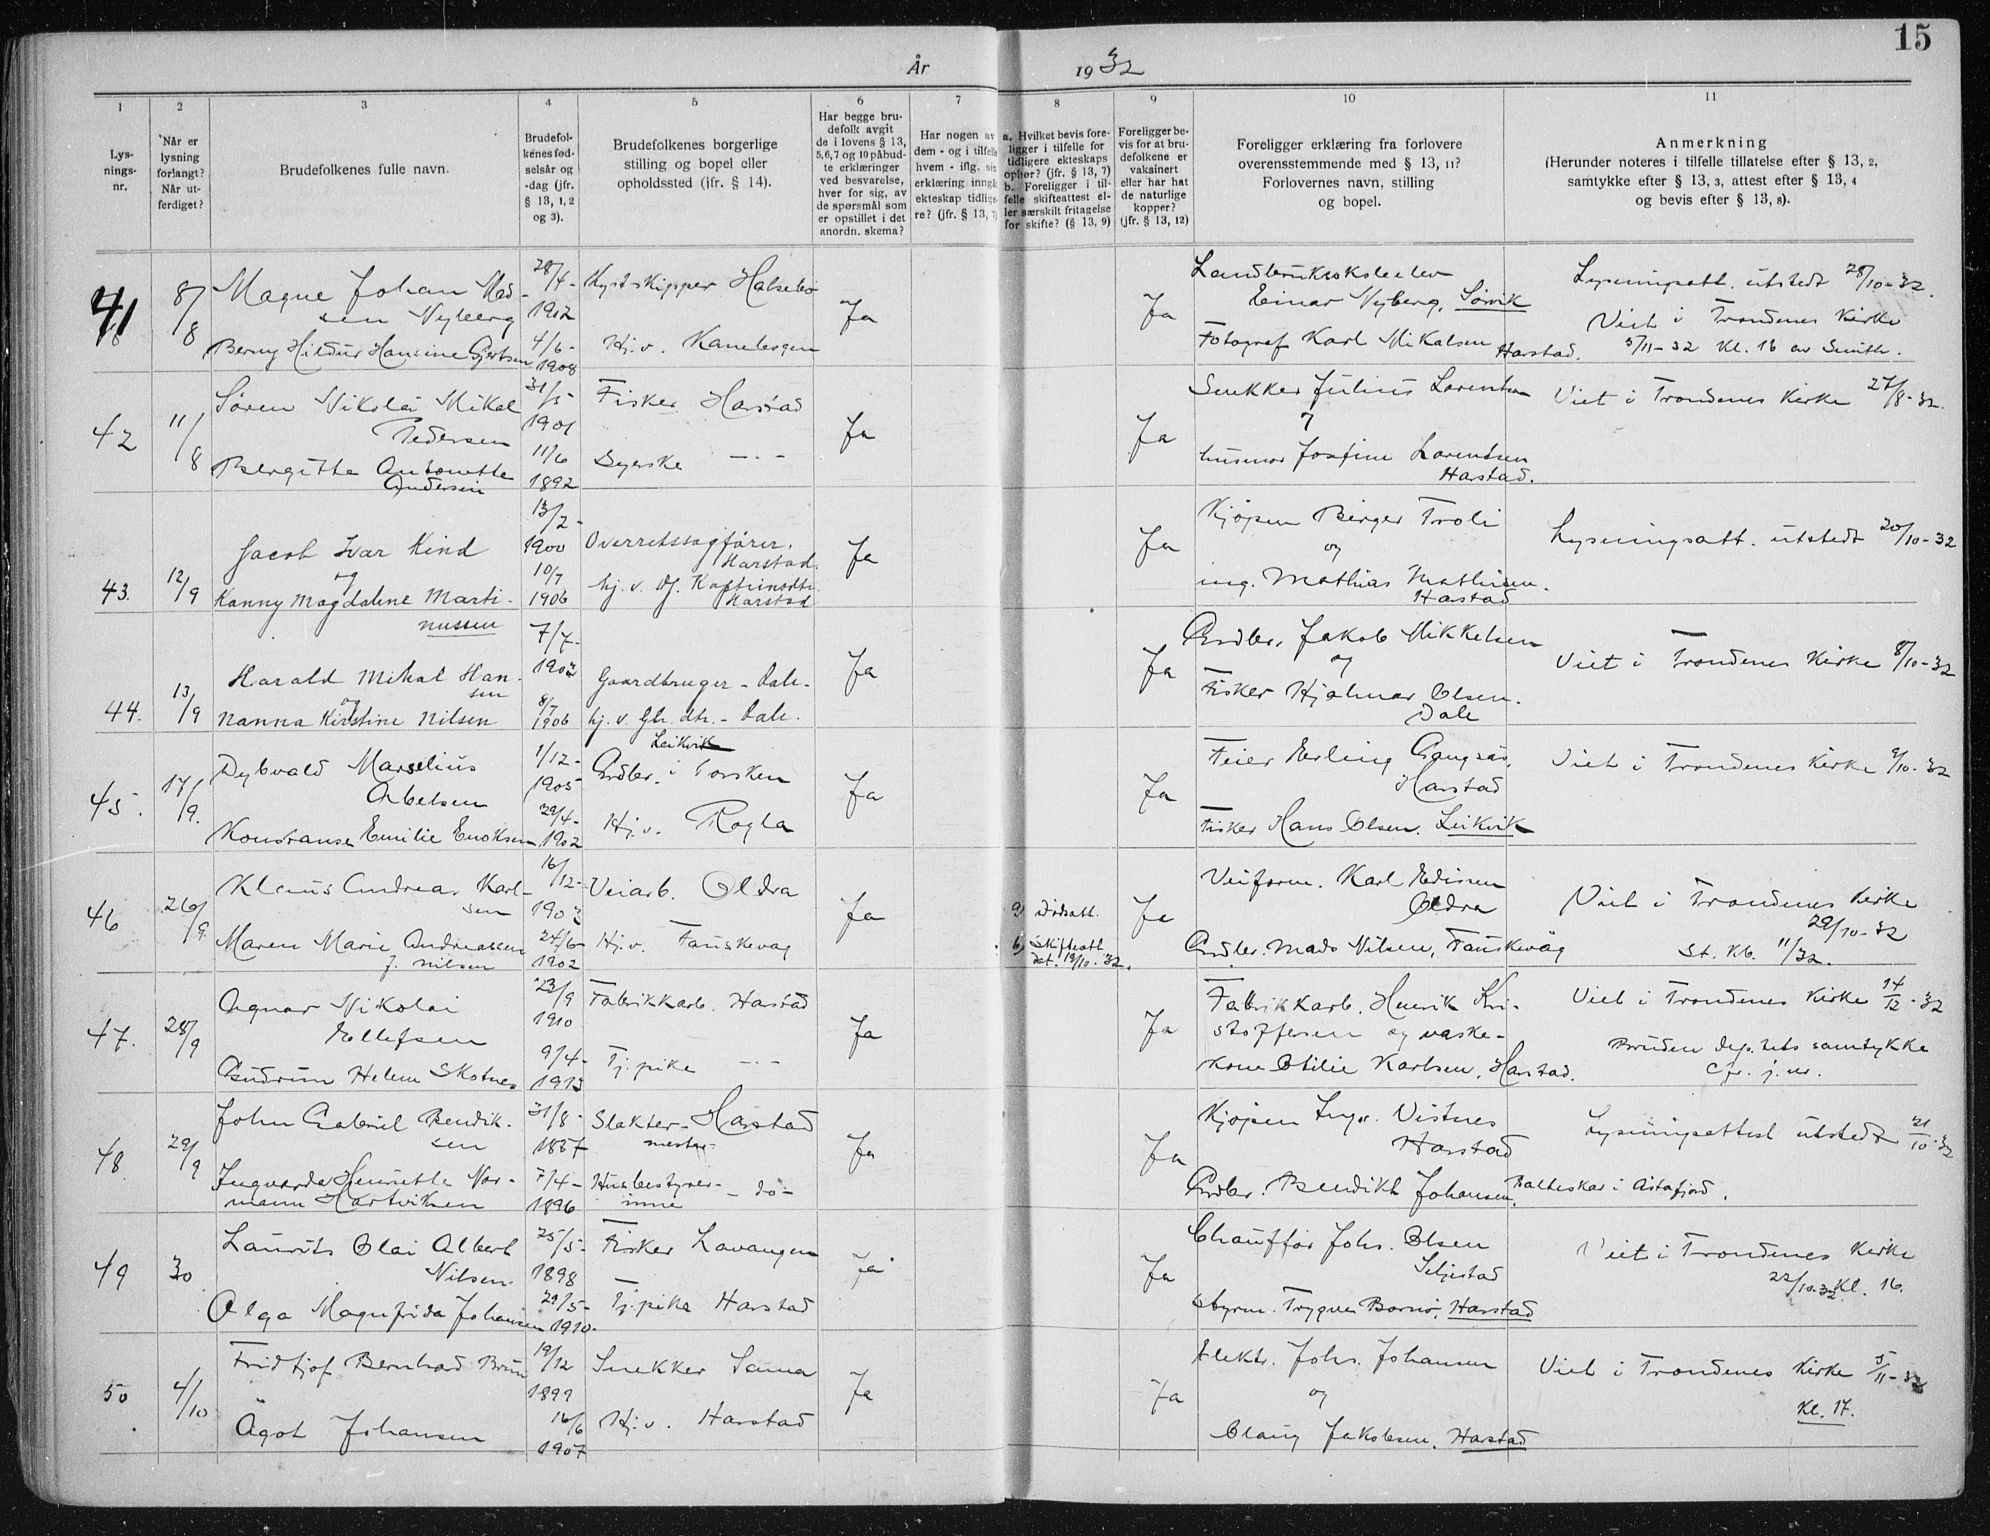 15
År 1932
1 2 3 4 5 6 7 8 9 10 11
Lys-
nings-
nr.
Når er
lysning
forlangt?
Når ut-
ferdiget?
Brudefolkenes fulle navn.
Brudefol-
kenes fød-
selsår og
-dag (jfr.
§ 13, 1, 2
og 3).
Brudefolkenes borgerlige
stilling og bopel eller
opholdssted (jfr. § 14).
Har begge bru-
defolk avgit
de i lovens § 13,
5,6,7 og 10 påbud-
te erklæringer
ved besvarelse,
hver for sig, av
de spørsmål som
er opstillet i det
anordn. skema?
Har nogen av
dem - og i tilfelle
hvem - iflg. sin
erklæring inngå
ekteskap tidlige-
re? (jfr. § 13, 7)
a. Hvilket bevis fore-
ligger i tilfelle for
tidligere ekteskaps
ophør? (jfr. § 13, 7)
b. Foreligger i til-
felle skifteattest el-
ler særskilt fritagelse
for skifte? (§ 13, 9)
Foreligger be-
vis for at bru-
defolkene er
vaksinert
eller har hat
de naturlige
kopper?
(jfr. § 13, 12)
Foreligger erklæring fra forlovere
overensstemmende med § 13, 11?
Forlovernes navn, stilling
og bopel.
Anmerkning
(Herunder noteres i tilfelle tillatelse efter § 13, 2,
samtykke efter § 13, 3, attest efter § 13, 4
og bevis efter § 13, 8).
41 8/8 Magne Johan Mad-
sen Nyberg
28/4-
1902
Kystskipper Halsebø
Berny Hildur Hansine Gjertsen
4/6-
1908
Hj.v. Kanebogen
Ja
Ja
Landbruksskoleelev
Einar Nyberg, Sørvik
Fotograf Karl Mikalsen
Harstad.
Lysningsatt. utstedt 28/10-32.
Viet i Trondenes Kirke
5/11-32 Kl. 16 av Smith.
42 11/8 Søren Nikolai Mikal
Pedersen
31/5-
1901
Fisker Harstad
Bergitte Antonette
Andersen
11/6
1892
Syerske - " -
Ja
Ja
Snekker Julius Lorentsen
og
husmor Josfine Lorentsen
Harstad.
Viet i Trondenes Kirke 27/8-32.
43. 12/9 Jacob Ivar Kind
og
13/2-
1900
Overretssagfører,
Harstad.
Kanny Magdalene Marti-
nussen
10/7
1906
hj. v. dj. Kapteinsdtr.
Harstad
Ja
Ja
Kjøpm Birger Troli
og
ing. Mathias Mathisen.
Harstad
Lysningsatt. utstedt 20/10-32
44. 13/9 Harald Mikal Han-
sen
og
7/7-
1902
Gaardbruger - Dale-
Nanna Kirstine Nilsen
8/7
1906
hj. v. Gbr. dtr. - Dale.
Ja
Ja
Grdbr. Jakob Mikkelsen
og
Fisker Hjalmar Olsen.
Dale
Viet i Trondenes Kirke 8/10-32
45. 17/9. Dybvald Marselius
Abelsen
1/12-
1905
Leikvik
Grdbr. i Torsken
Konstanse Emilie Enoksen
29/4-
1902
Hj.v. Rogla
Ja
Ja
Feier Erling Gangsås,
Harstad
Fisker Hans Olsen. Leikvik
Viet i Trondenes Kirke 9/10-32
46 26/9. Klaus Andreas Karl-
sen
16/12-
1903
Veiarb. Oldra
Maren Marie Andreassen
f. Nilsen
24/6-
1902
Hj.v. Fauskevåg
Ja
a) Dødsatt.
b) Skifteatt.
dat. 19/10-32.
Ja
Veiform. Karl Edissen
Oldra
Grdbr. Mads Nilsen, Fauskevåg
Viet i Trondenes Kirke
29/10-32
St. kb. 11/32.
47. 28/9 Agnar Nikolai
Ellefsen
23/9
1910
Fabrikkarb. Harstad
Gudrun Helene Skotnes
9/4-
1913
Tj.pike - " -
Ja
Ja
Fabrikkarb. Henrik Kri-
stoffersen og vaske-
kone Otilie Karlsen, Harstad.
Viet i Trondenes Kirke 14/12-32
Bruden dep.tets samtykke
Cfr. j.nr.
48 29/9 John Gabriel Bendik-
sen
31/8-
1887
Slakter- Harstad
mester
Ingvarda Henriette Nor-
mann Hartviksen
7/4-
1896
Husbestyrer-
inne - do -
Ja
Ja
Kjøpm Ingv. Vistnes
Harstad
Grdbr. Bendikt Johansen, Balteskar i Astafjord.
Lysningsattest utstedt 21/10-32
49 30 Laurits Olai Albert
Nilsen.
25/5-
1898
Fisker Lavangen
Olga Magnfrida Johansen
29/5-
1910.
Tj.pike Harstad
Ja
Ja
Chauffør Johs. Olsen
Seljestad
Styrm. Trygve Bornø, Harstad
Viet i Trondenes Kirke
22/10-32 Kl. 16.
50 4/10 Fridtjof Bernhard Brun
19/12
1899
Snekker Sama
Ågot Johansen
16/6
1907
Hj.v. Harstad
Ja
Ja
Elektr. Johs. Johansen
og
Olaug Jakobsen. Harstad
Viet i Trondenes Kirke 5/11-32
Kl. 17.